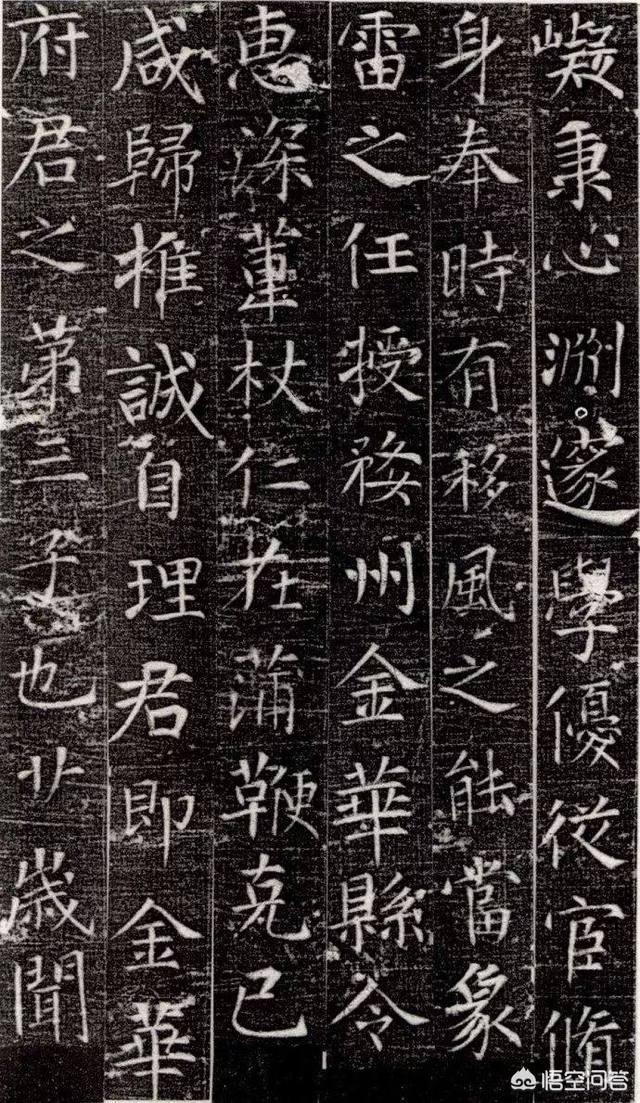 嶷秉心淵邃學優從宦脩
身奉時有移風之能當象
雷之任授婺州金華縣令
惠深蓽杖仁在蒲鞭克己
咸歸推誠自理君即金華
府君之第三子也廿歲聞
悟空问答